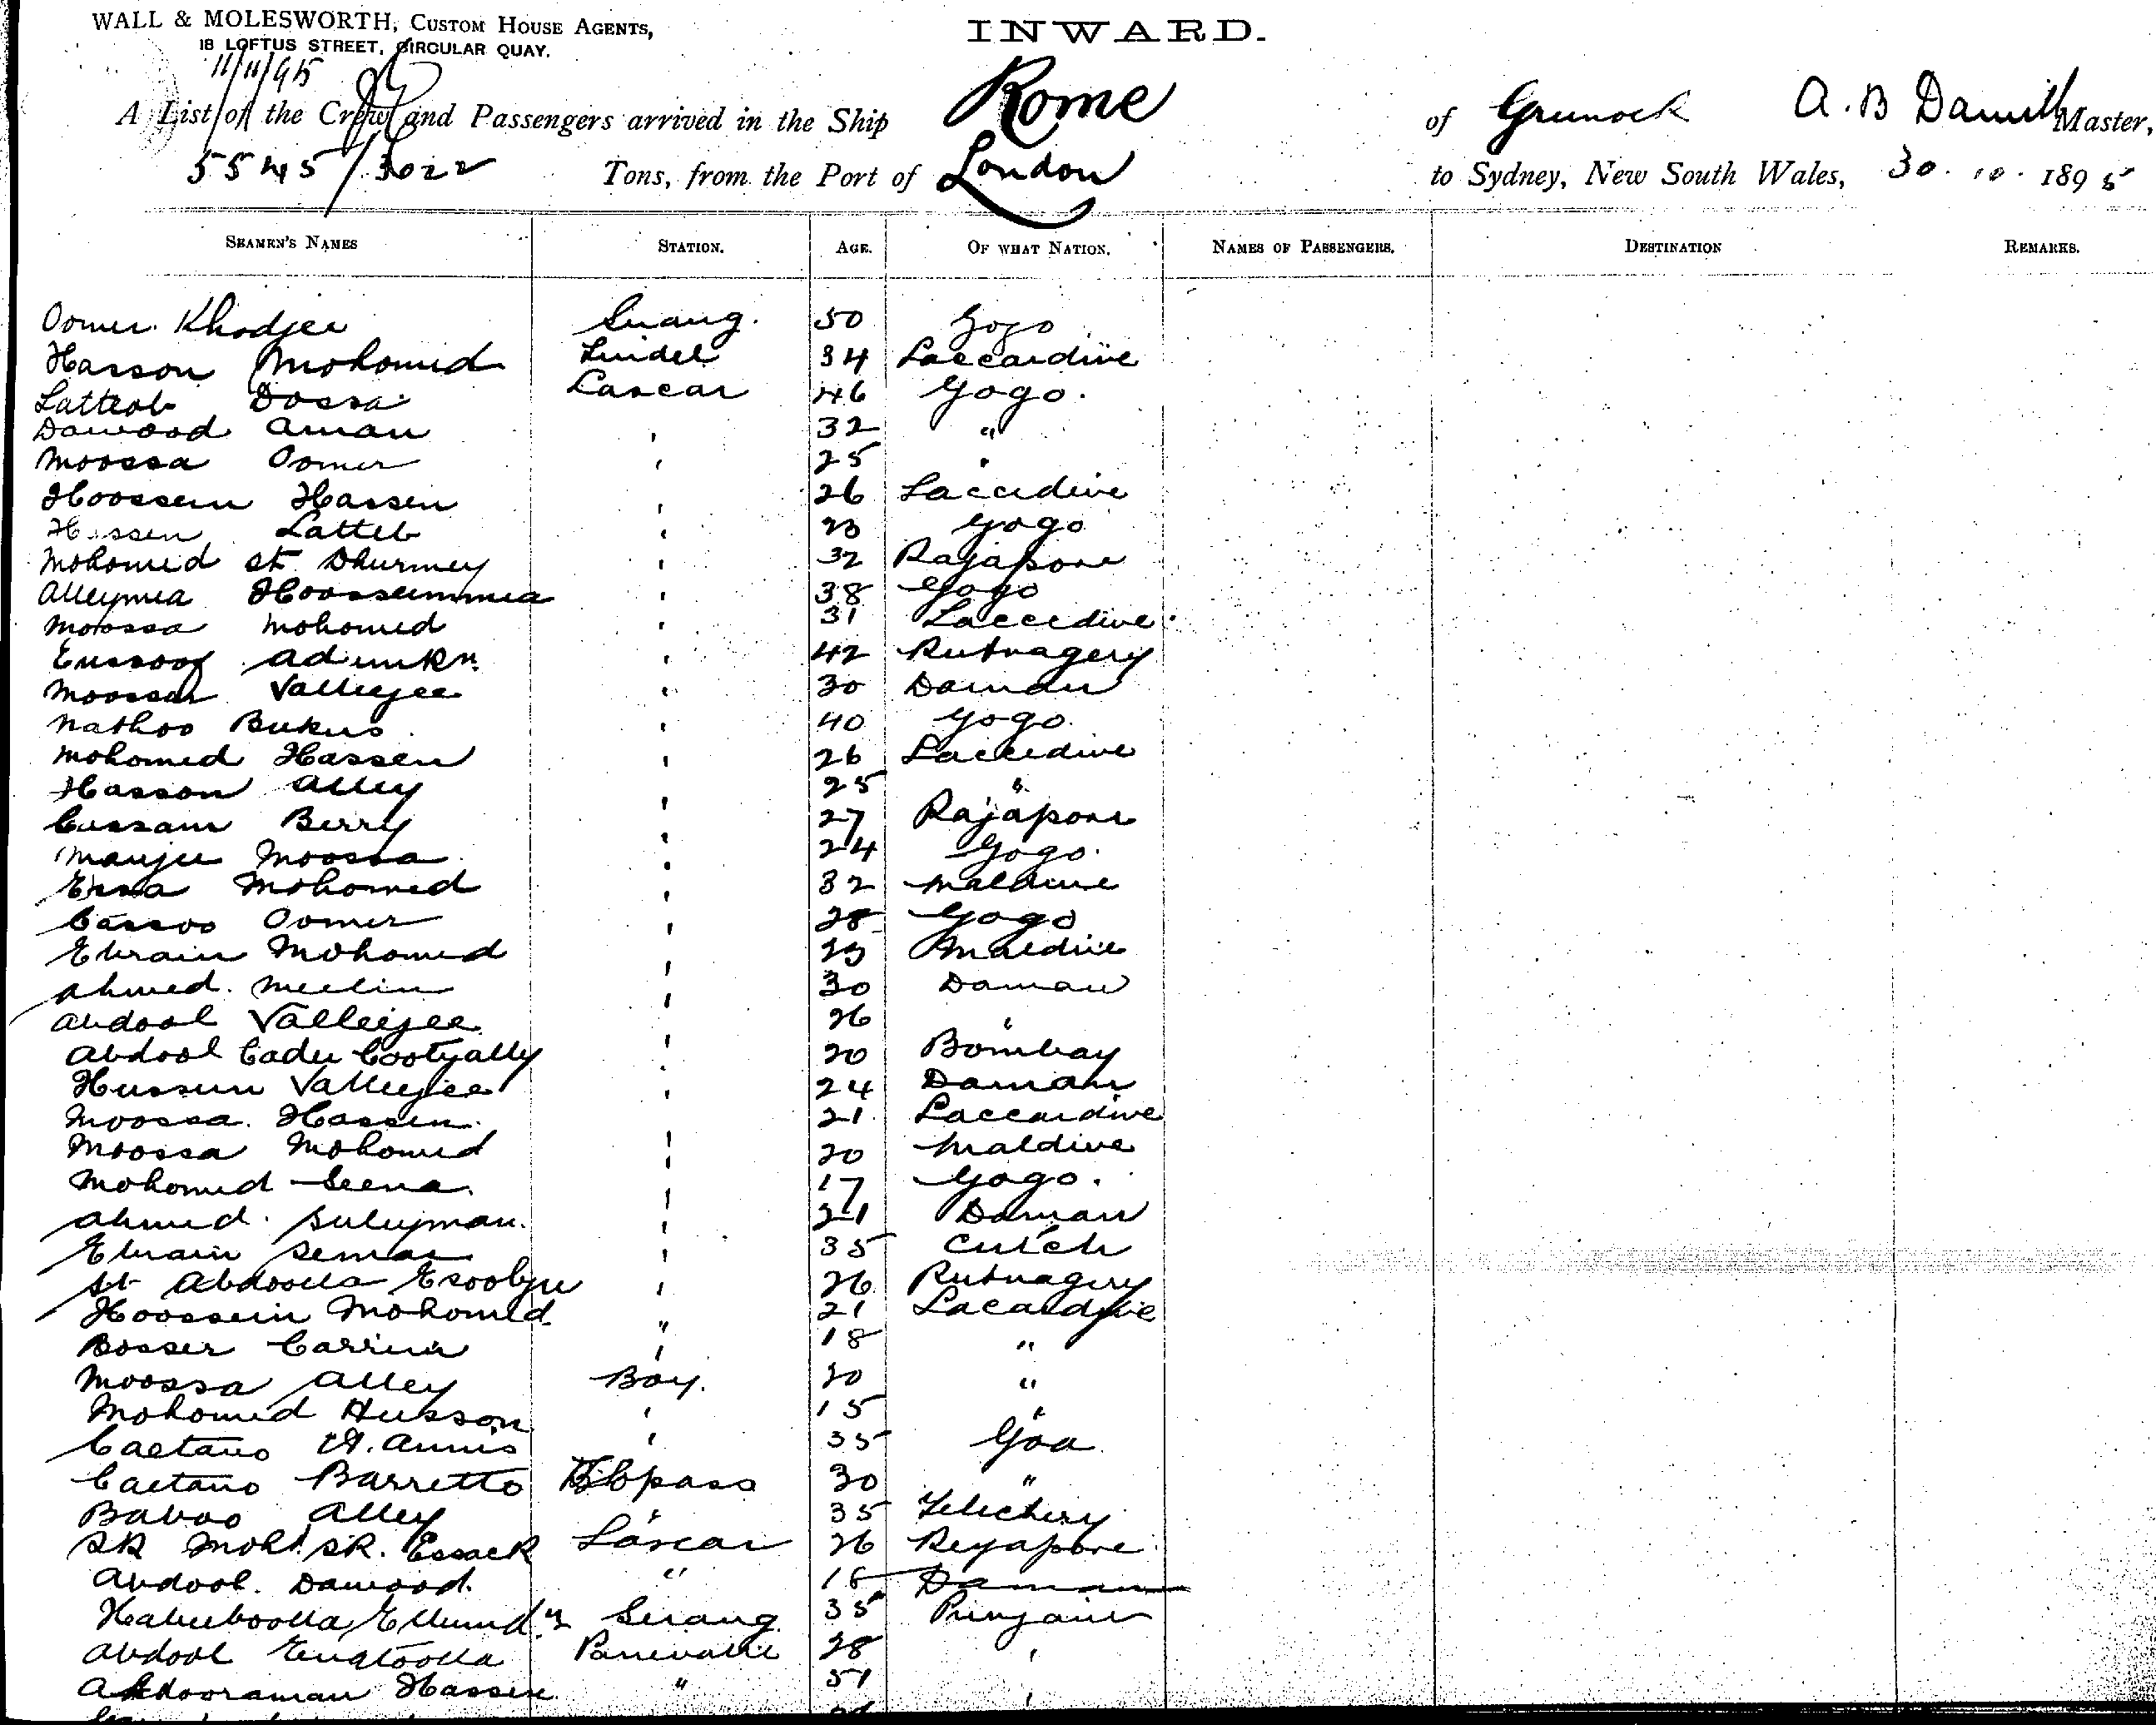 WALL & MOLESWORTH, CUSTOM HOUSE AGENTS,
18 LOFTUS STREET, CIRCULAR QUAY.
11/11/95
INWARD.
A List of the Crew and Passengers arrived in the Ship Rome of Greenock A. B Daniell Master,
5545/3022 Tons, from the Port of London to Sydney, New South Wales, 30. 10. 1895
SEAMEN'S NAMES STATION. AGE. OF WHAT NATION. NAMES OF PASSENGERS. DESTINATION REMARKS.
Oomer Khodjee Serang. 50 Gogo
Hasson Mohomed Tindel 34 Laccardive
Latteeb Dossa Lascar 46 Gogo.
Dawood Aman " 32 "
Moossa Oomer " 25 "
Hoossein Hassen " 26 Laccedive
Hassen Latteb " 23 Gogo
Mohomed St. Dhurmey " 32 Rajapore
Alleymea Hoosseinmea " 38 Gogo
Moossa Mohomed " 31 Laccedive
Eussoof " 42 Rutnagery
Moossa Valleejee " 30 Daman
Nathoo Bukus " 40 Gogo.
Mohomed Hassen " 26 Laccedive
Hasson Alley " 25 "
Cussam Berry " 27 Rajapore
Manjee Moossa " 24 Gogo.
Essa Mohomed " 32 Maldive
Cassoo Oomer " 28 Gogo
Ebraim Mohomed " 23 Maldive
Ahmed. " 30 Daman
Abdool Valleejee " 26 "
Abdool Cader Cootyally " 20 Bombay
Hussein Valleejee " 24 Daman
Moossa. Hassen. " 21 Laccardive
Moossa Mohomed " 20 Maldive
Mohomed Seena. " 17 Gogo.
Ahmed. Suleyman. " 21 Daman
Ebraim " 35 Cutch
St Abdoolla " 26 Rutnagery
Hoossein Mohomed " 21 Lacardive
Bosser " 18 "
Moossa Alley Boy. 20 "
Mohomed Husson " 15 "
Caetano " 35 Goa
Caetano Barretto 30 "
Baboo Alley " 35 Telichery
SK Mohd. SK. Essack Lascar 26 Reyapore
Abdool. Dawood. " 18 Daman
Habeeboolla Serang 35 Punjaub
Abdool 28 "
Abdooraman Hassen " 51 "